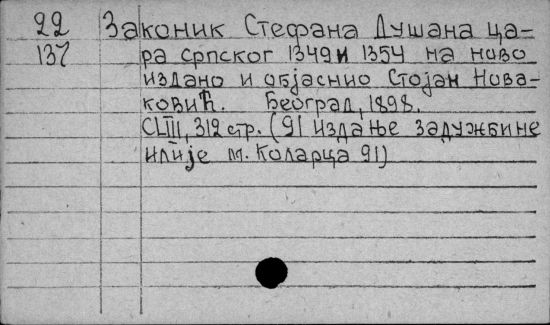 22 Законик Стефана Душана ца-
137 ра српског 1349 и 1354 на ново
издано и објаснио Стојан Нова-
ковић. Београд, 1898.
CLIII, 312 стр. (91 издање задужбине
Илије М. Коларца 91)